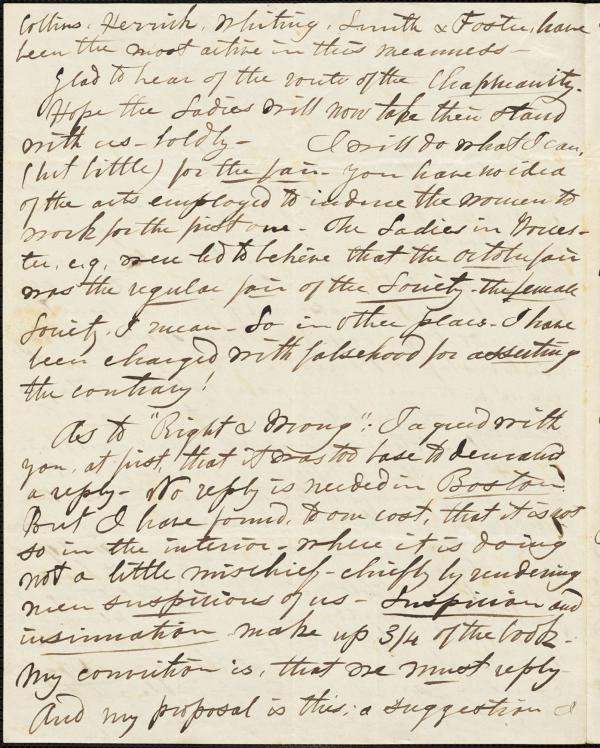 Collins, Herrick, Whiting, Smith & Foster, have
been the most active in this meanness -
Glad to hear of the route of the Chapmanity.
Hope the Ladies will now take their stand
with us - boldly - I will do what I can,
(but little) for the fair - You have no idea
of the arts employed to induce the women to
work for the first one - The Ladies in Worces-
ter, e.g. were led to believe that the October fair
was the regular fair of the Society - the female
Society, I mean - So in other places - I have
been charged with falsehood for asserting
the contrary!
As to "Right & Wrong": I agreed with
you, at first, that it was too base to demand
a reply - No reply is needed in Boston.
But I have found, to our cost, that it is not
so in the interior - where it is doing
not a little mischief - chiefly by rendering
men suspicious of us - Suspicion and
insinuation make up 3/4 of the book -
My conviction is, that we must reply -
And my proposal is this; a suggestion